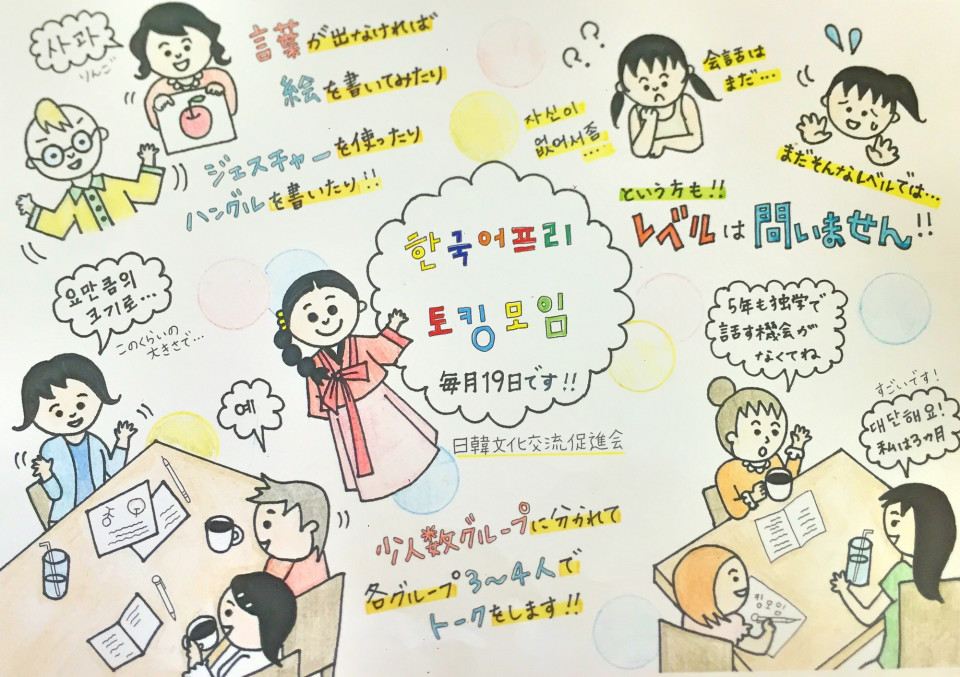 사과
りんご
言葉が出なければ
絵を書いてみたり
ジェスチャーを使ったり
ハングルを書いたり!!
???
자신이
없어서좀
....
会話は
まだ…
まだそんなレベルでは…
という方も!!
レベルは問いません!!
한국어프리
토킹모임
毎月19日です!!
日韓文化交流促進会
요만큼의
크기로...
このくらいの
大きさで...
예
5年も独学で
話す機会が
なくてね
すごいです!
대단해요!
私は3ヵ月
少人数グループに分かれて
各グループ3〜4人で
トークをします!!
킹모임